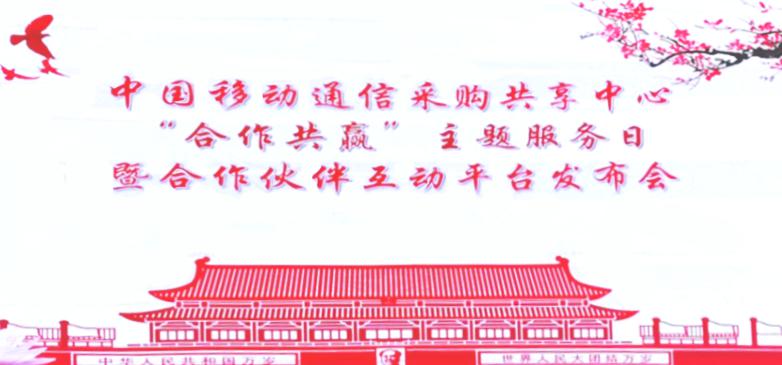 中国移动通信采购共享中心
“合作共赢”主题服务日
暨合作伙伴互动平台发布会
中华人民共和国万岁 世界人民大团结万岁